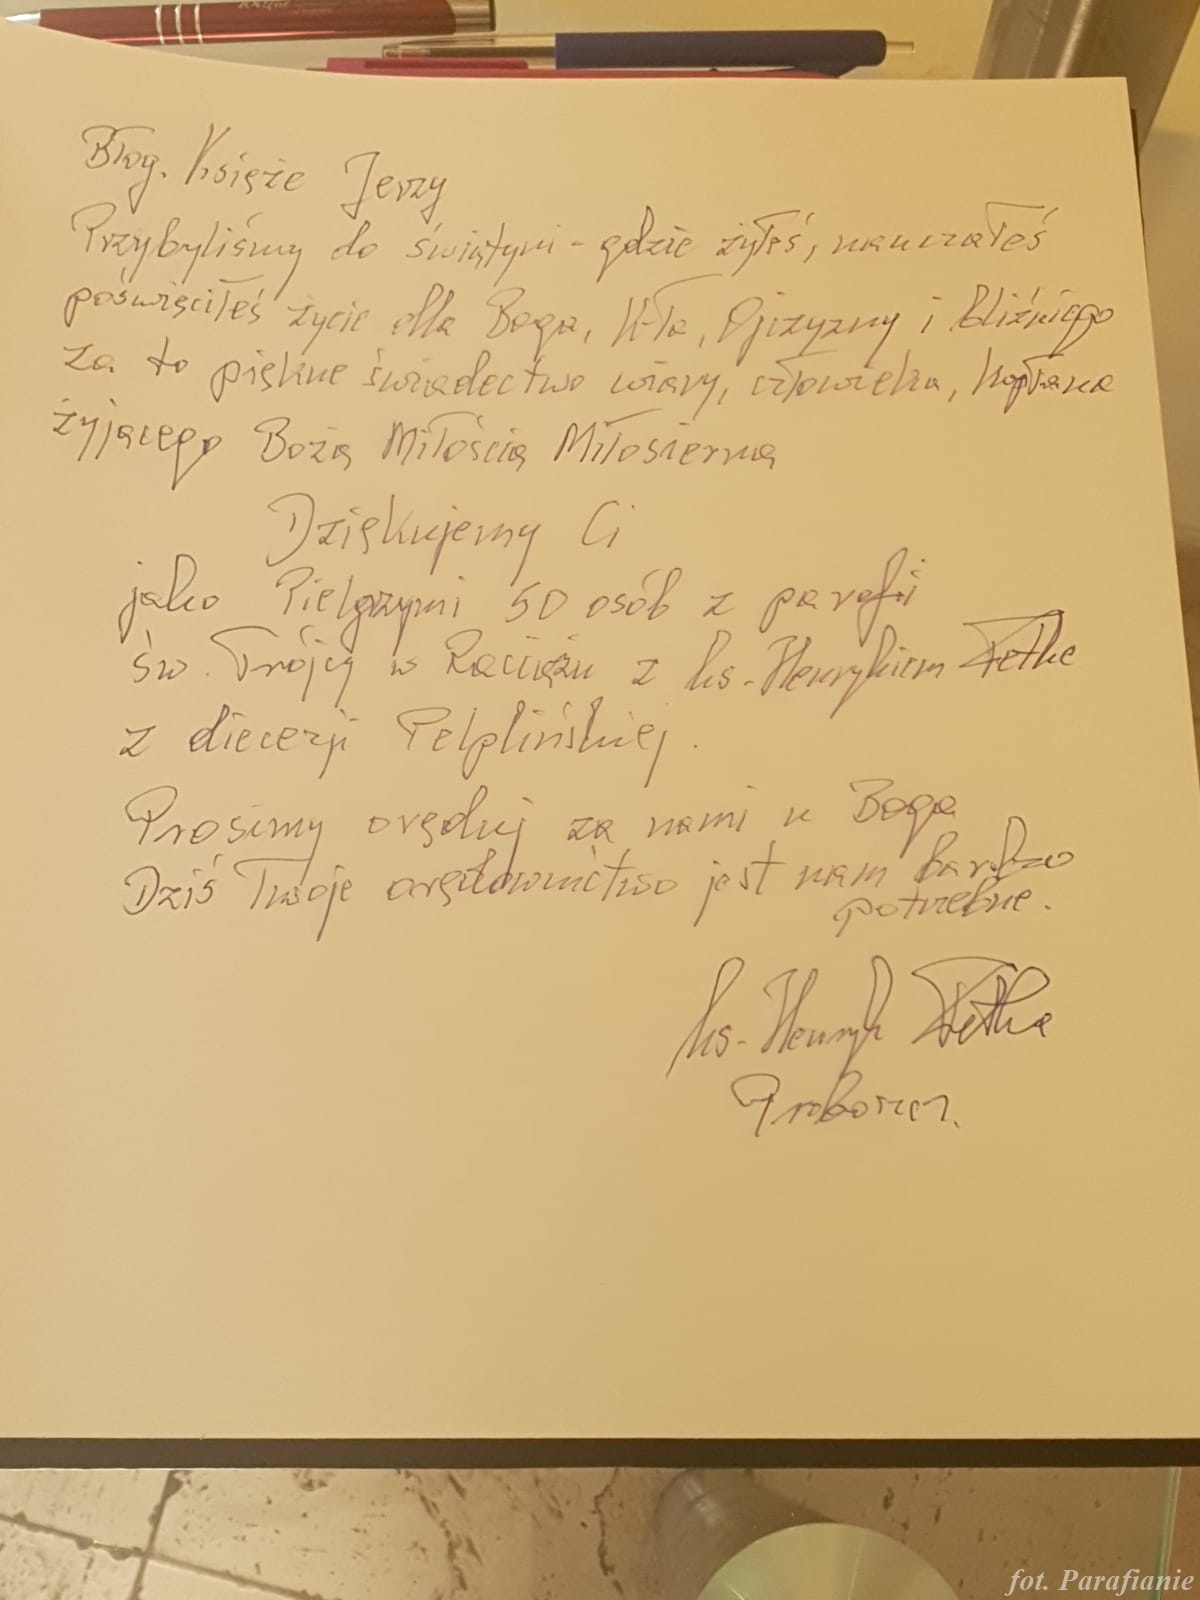 Błog. Księże Jerzy
Przybyliśmy do świątyni - gdzie żyłeś, nauczałeś
poświęciłeś życie dla Boga, K-ła, Ojczyzny i bliźniego
za to piękne świadectwo wiary, człowieka, kapłana
żyjącego Bożą Miłością Miłosierną
Dziękujemy Ci
jako Pielgrzymi 50 osób z parafii
św. Trójcy w Raciążu z ks. Henrykiem
z diecezji Pelplińskiej.
Prosimy oręduj za nami u Boga
Dziś Twoje orędownictwo jest nam bardzo
potrzebne.
ks. Henryk
Proboszcz.
fot. Parafianie